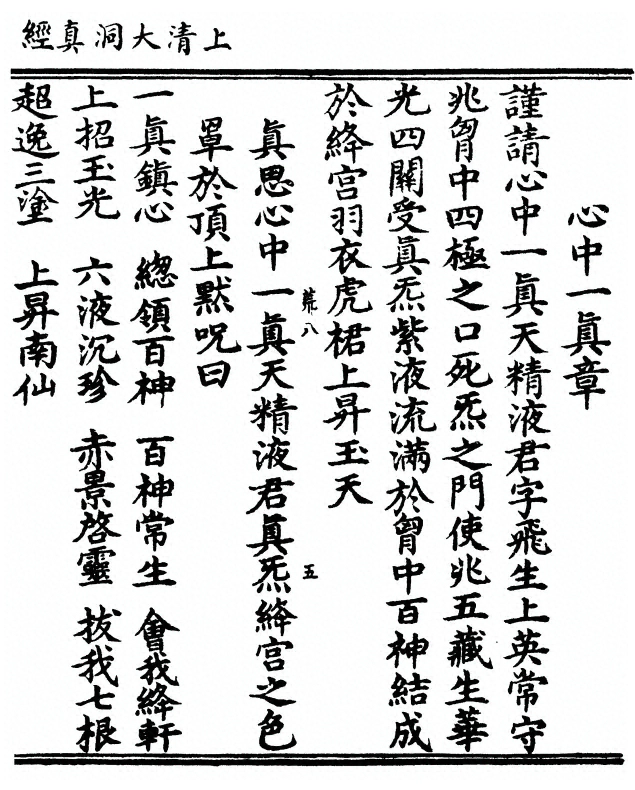 上清大洞真經
心中一眞章
謹請心中一眞天精液君字飛生上英常守
兆胷中四極之口死炁之門使兆五藏生華
光四關受眞炁紫液流滿於胷中百神結成
於絳宮羽衣虎裙上昇玉天
眞思心中一眞天精液君眞炁絳宮之色
八
五
罩於頂上默呪曰
一眞鎮心 總領百神 百神常生 會我絳軒
上招玉光 六液沉珍 赤景啓靈 拔我七根
超逸三塗 上昇南仙